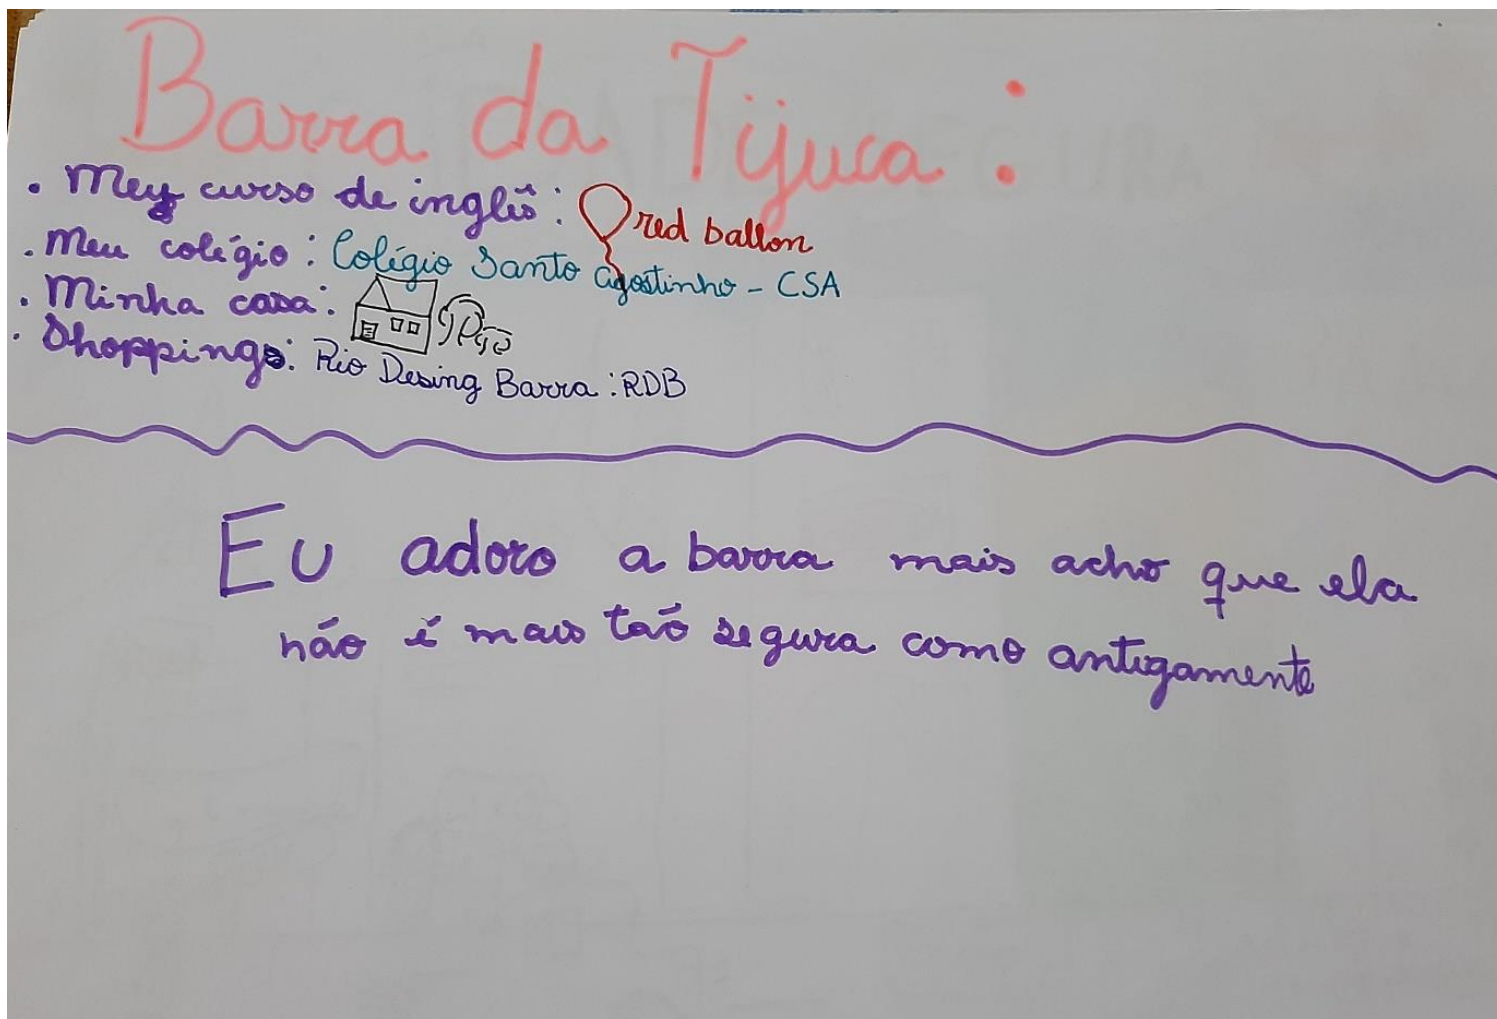 Barra da Tijuca :
. Meu curso de inglês : red ballon
. Meu colégio : Colégio Santo Agostinho - CSA
. Minha casa :
. Shoppings : Rio Desing Barra : RDB
Eu adoro a barra mais acho que ela
não é mais tão segura como antigamente